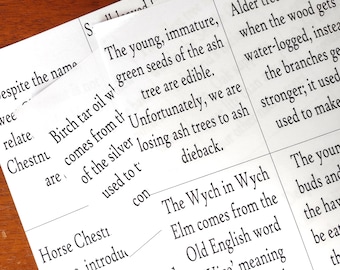 Despite the name
Birch tar oil w
comes from th
of the silver
used to t
con
The young, immature,
green seeds of the ash
tree are edible.
Unfortunately, we are
losing ash trees to ash
dieback.
Alder
when the wood gets
water-logged, instea
the branches ge
stronger; it used
used to make
Horse Chestn
introdu
The Wych in Wych
Elm comes from the
Old English word
meaning
The youn
buds and
the haw
be eat